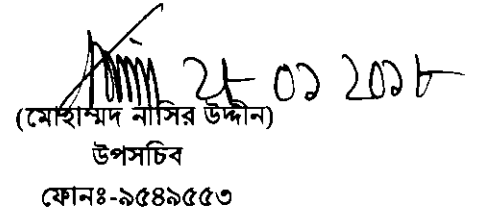 ২৮ ০১ ২০১৮
(মোহাম্মদ নাসির উদ্দীন)
উপসচিব
ফোনঃ-৯৫৪৯৫৫৩